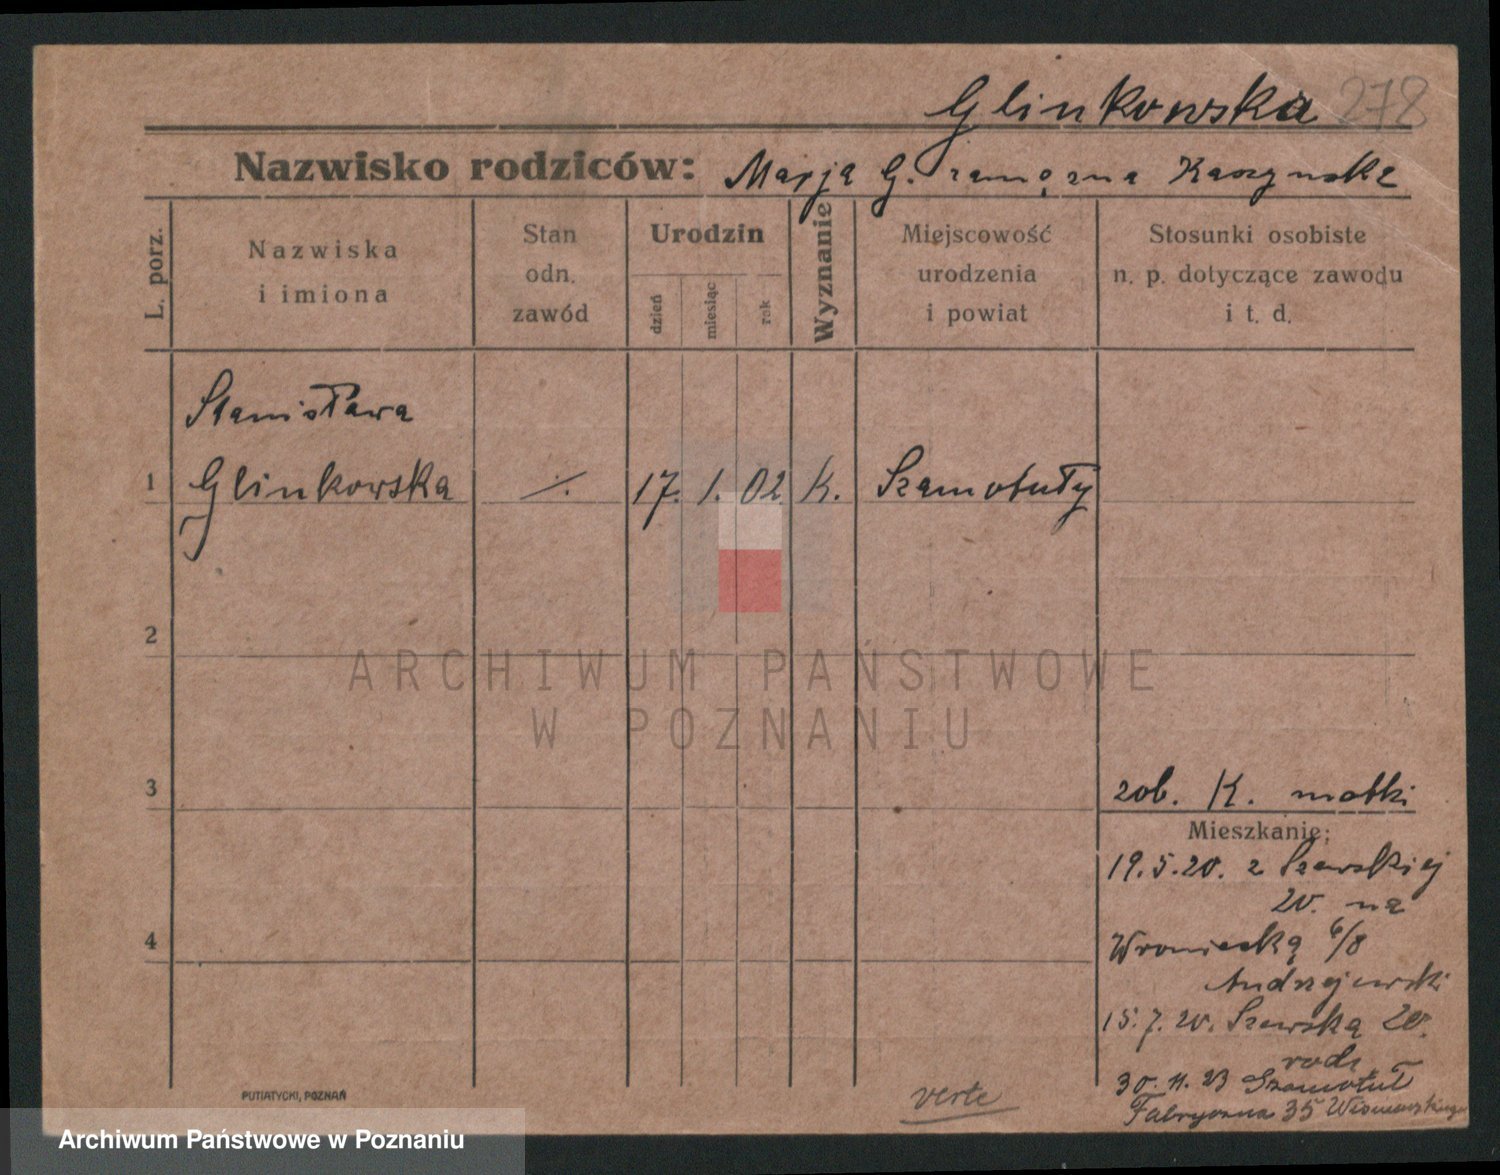 Glinkowska 278
Nazwisko rodziców: Marja G. zamężna Kaszynska
L. porz.
Nazwiska
i imiona
Stan
odn.
zawód
Urodzin
dzień
miesiąc
rok
Wyznanie
Miejscowość
urodzenia
i powiat
Stosunki osobiste
n. p. dotyczące zawodu
i t. d.
Stanisława
1 Glinkowska ./. 17. 1. 02 K. Szamotuły
2
ARCHIWUM PAŃSTWOWE
W POZNANIU
3
zob. K. matki
Mieszkanie:
19.5.20. z Szewskiej
20. na
4
Wroniecką 6/8
Andrzejewski
15.7.20. Szewską 20.
rodz
30.11.23 Szamotuł
Fabryczna 35
verte
PUTIATYCKI, POZNAŃ
Archiwum Państwowe w Poznaniu